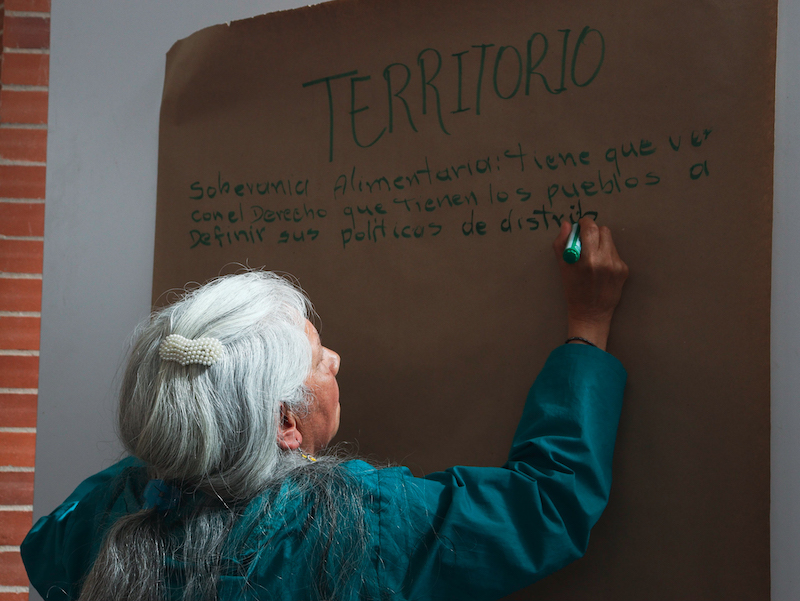 TERRITORIO
Soberania Alimentaria: Tiene que ver
con el Derecho que Tienen los pueblos a
Definir sus políticas de distrib